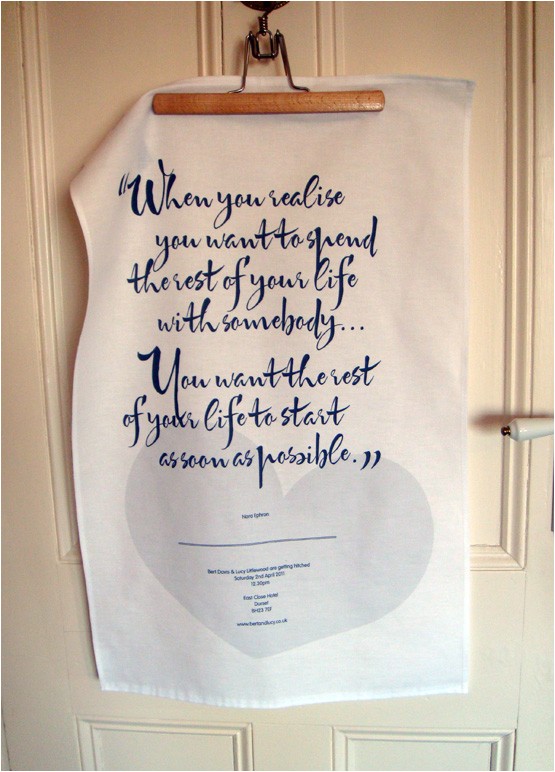 “When you realise
you want to spend
the rest of your life
with somebody...
You want the rest
of your life to start
as soon as possible.”
Nora Ephron
Bert Davis & Lucy Littlewood are getting hitched
Saturday 2nd April 2011
12.30pm
East Close Hotel
Dorset
BH23 7EF
www.bertandlucy.co.uk